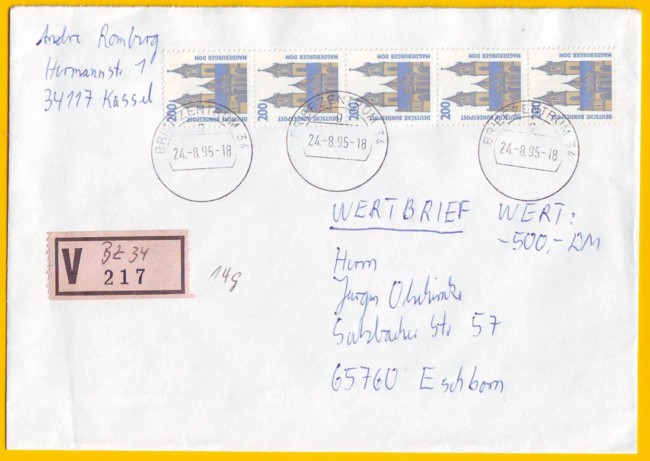 Andre Romburg
Hermannstr. 1
34117 Kassel
MAGDEBURGER DOM
DEUTSCHE BUNDESPOST
200
MAGDEBURGER DOM
DEUTSCHE BUNDESPOST
200
MAGDEBURGER DOM
DEUTSCHE BUNDESPOST
200
MAGDEBURGER DOM
DEUTSCHE BUNDESPOST
200
MAGDEBURGER DOM
DEUTSCHE BUNDESPOST
200
BRIEFZENTRUM 34
24.-8.95-18
BRIEFZENTRUM 34
24.-8.95-18
BRIEFZENTRUM 34
24.-8.95-18
WERTBRIEF WERT:
-500,-DM
V
BZ 34
217
14g
Herrn
Jürgen
Sulzbacher Str. 57
65760 Eschborn